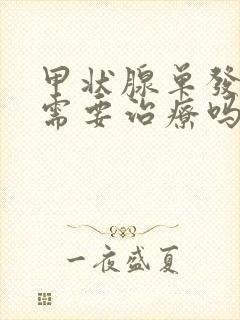 甲状腺单發
需要治療吗
一夜盛夏